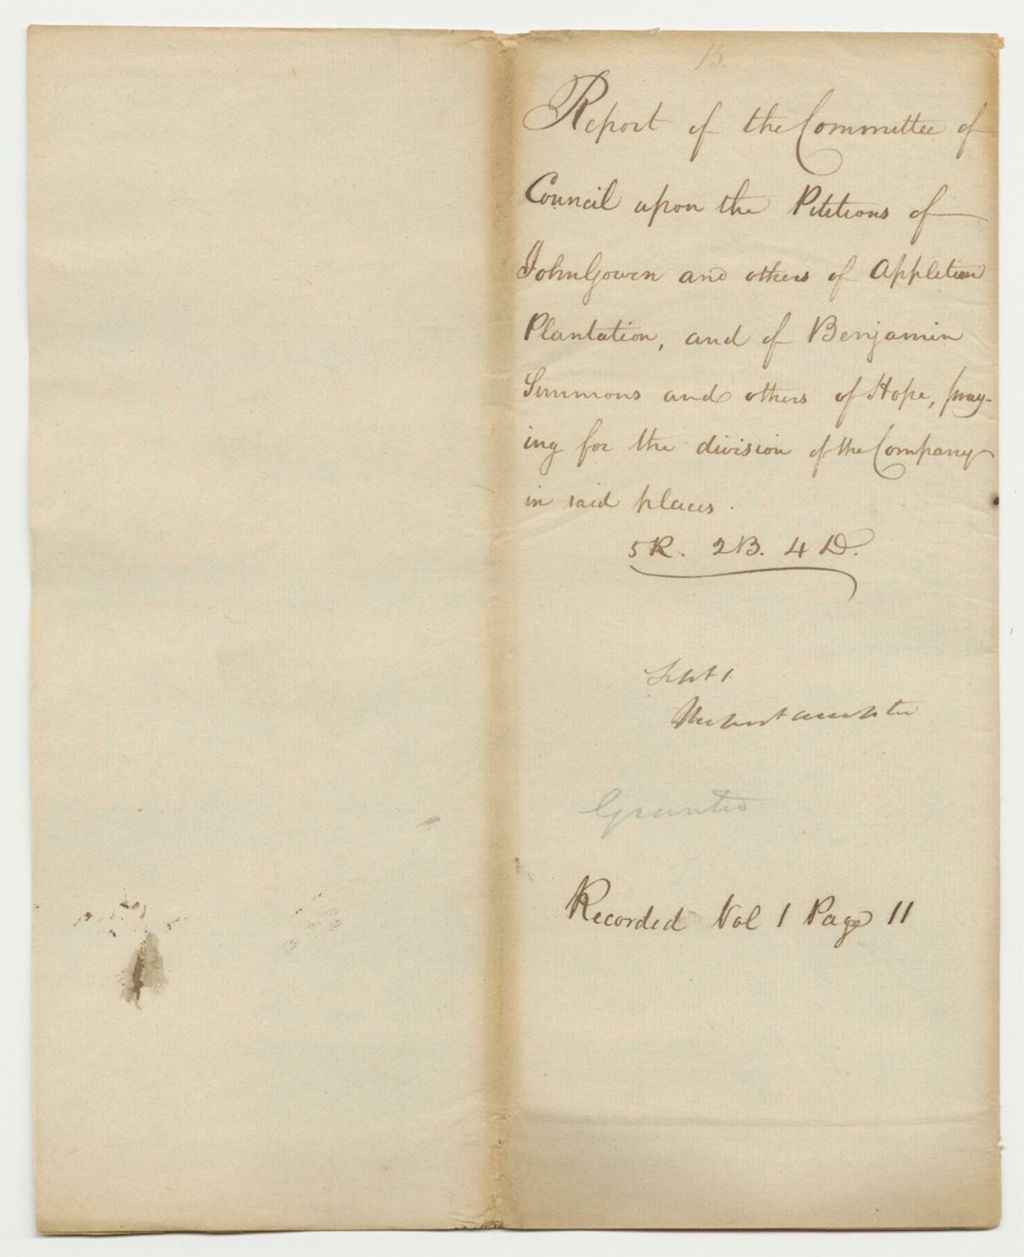 15.
Report of the Committee of
Council upon the Petitions of
John Gowen and others of Appleton
Plantation, and of Benjamin
Simmons and others of Hope, pray-
ing for the division of the Company
in said places.
5 R. 2 B. 4 D.
Sept 1
Report accepted
Granted
Recorded Vol 1 Page 11